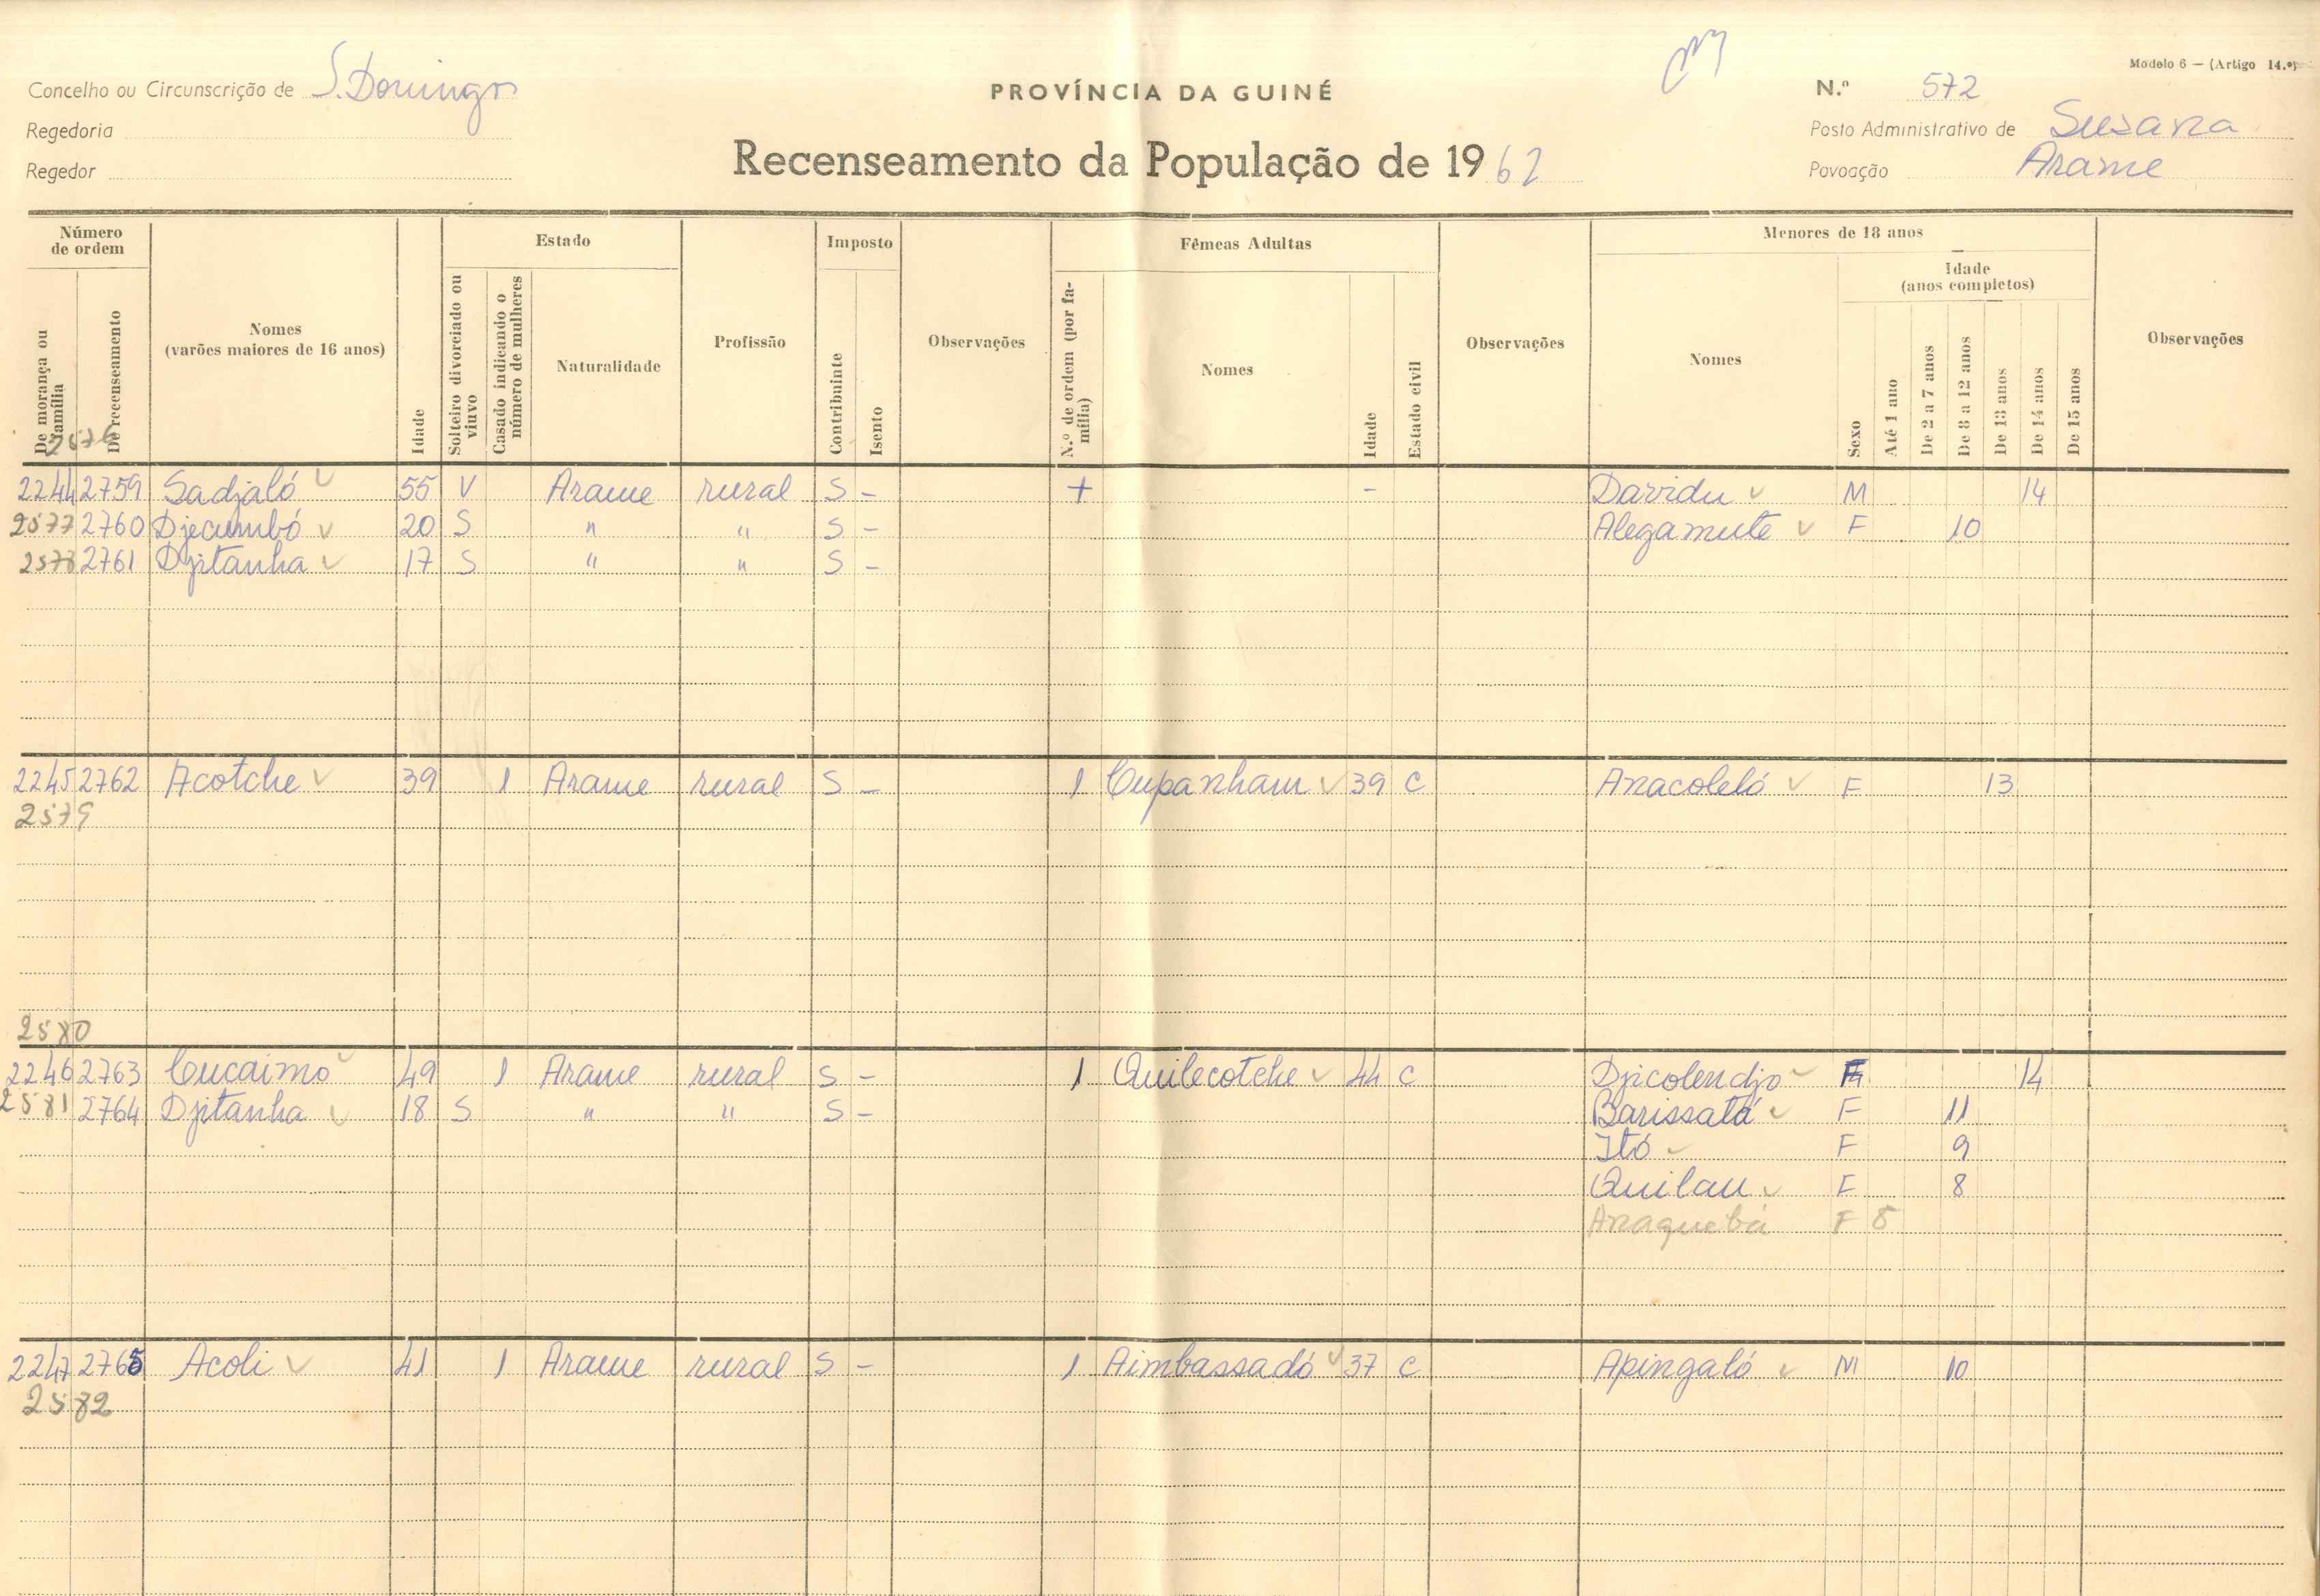 Modelo 6 — (Artigo 14.º)
Concelho ou Circunscrição de S. Domingos
PROVÍNCIA DA GUINÉ
N.º 572
Regedoria
Posto Administrativo de Susana
Regedor
Recenseamento da População de 1962
Povoação Arame
Número de ordem
De morança ou família
De recenseamento
Nomes (varões maiores de 16 anos)
Idade
Estado
Solteiro divorciado ou viuvo
Casado indicando o número de mulheres
Naturalidade
Profissão
Imposto
Contribuinte
Isento
Observações
Fêmeas Adultas
N.º de ordem (por família)
Nomes
Idade
Estado civil
Observações
Menores de 18 anos
Nomes
Sexo
Idade (anos completos)
Até 1 ano
De 2 a 7 anos
De 8 a 12 anos
De 13 anos
De 14 anos
De 15 anos
Observações
2576
2244 2759 Sadjaló 55 V Arame rural S - + - Davidu M 14
2577 2760 Djecumbó 20 S " " S - Alegamute F 10
2578 2761 Djitanha 17 S " " S -
2245 2762 Acotche 39 1 Arame rural S - 1 Cupanham 39 C Anacoleló F 13
2579
2580
2246 2763 Cucaimo 49 1 Arame rural S - 1 Quilecotche 44 C Djicolendjo F 14
2581 2764 Djitanha 18 S " " S - Barissatá F 11
Itó F 9
Quilau F 8
Anaquebá F 5
2247 2765 Acoli 41 1 Arame rural S - 1 Aimbassadó 37 C Apingaló M 10
2582